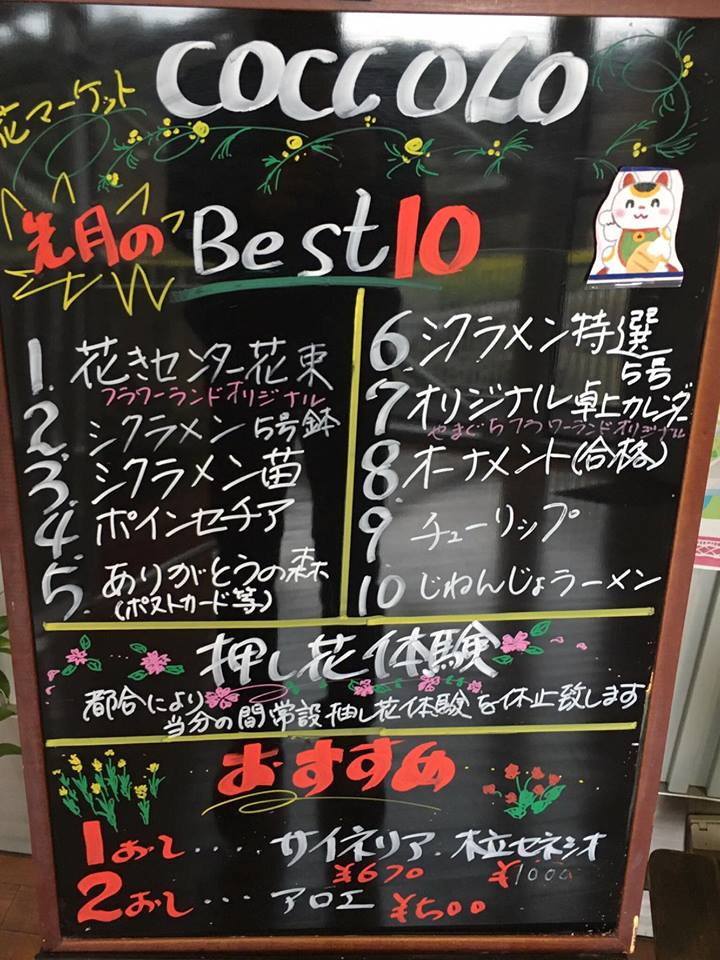 COCCOLO
花マーケット
先月のBest10
1. 花きセンター花束
フラワーランドオリジナル
2. シクラメン5号鉢
3. シクラメン苗
4. ポインセチア
5. ありがとうの森
(ポストカード等)
6 シクラメン特選
5号
7 オリジナル卓上カレンダー
やまぐちフラワーランドオリジナル
8. オーナメント(合格)
9 チューリップ
10 じねんじょラーメン
押し花体験
都合により
当分の間常設押し花体験を休止致します
おすすめ
1おし‥‥サイネリア 木立セネシオ
¥670 ¥1000
2おし‥・アロエ ¥500